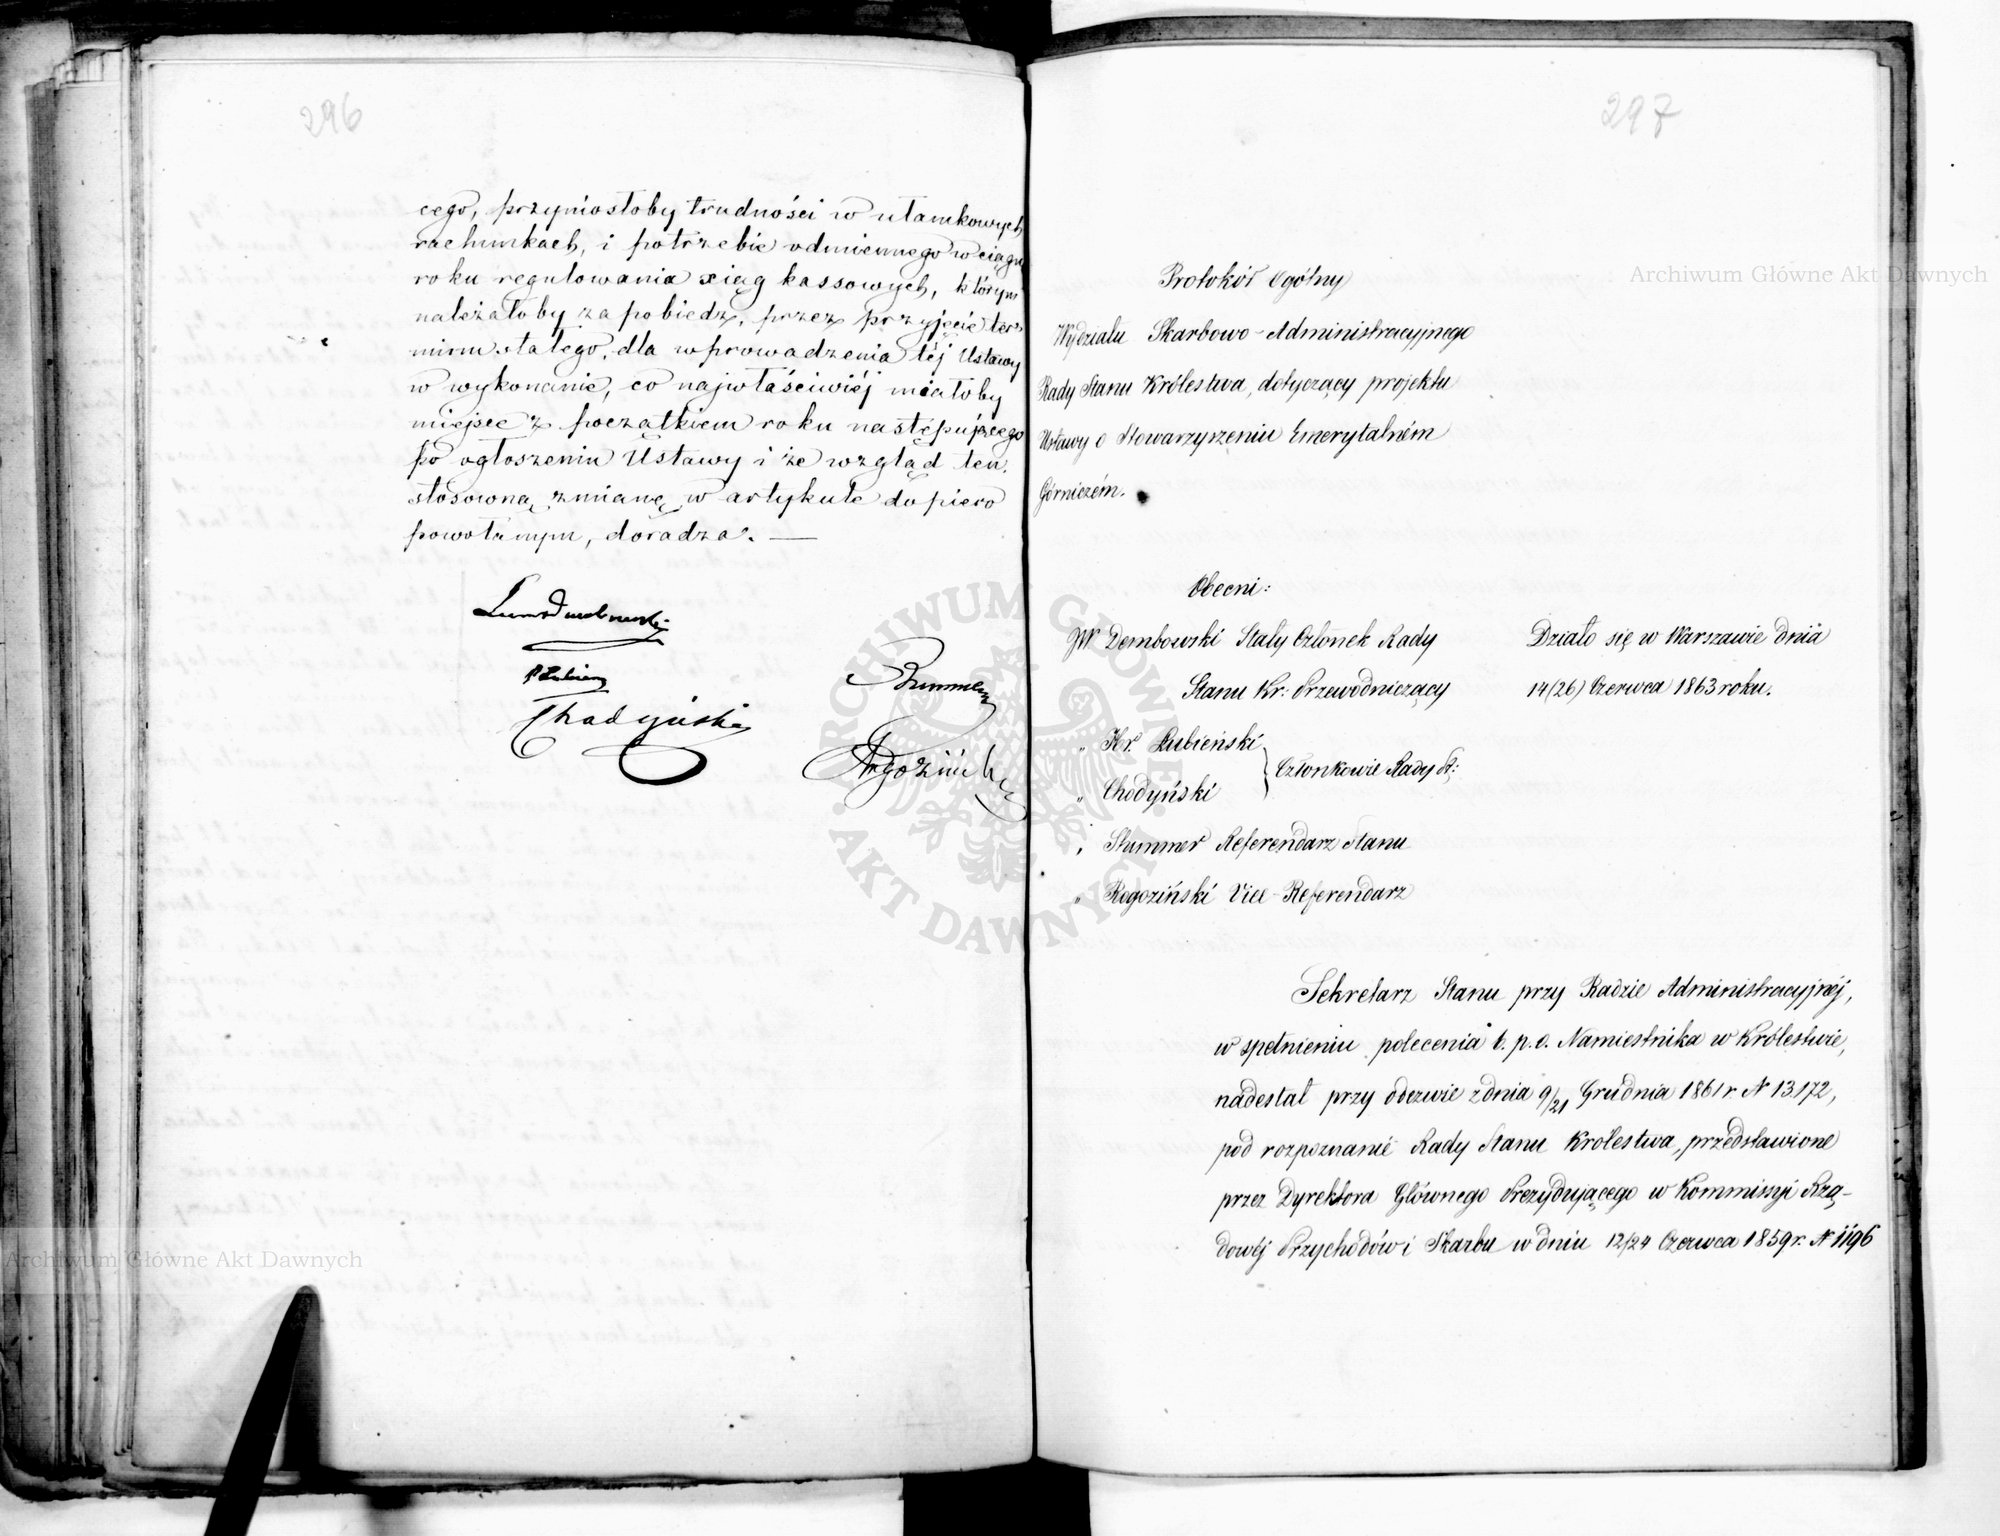 296
cego, przyniosłoby trudności w ułamkowych
rachunkach, i potrzebie odmiennego w ciągu
roku regulowania xiąg kassowych, którym
należałoby zapobiedz, przez przyjęcie ter-
minu stałego, dla wprowadzenia téj Ustawy
w wykonanie, co najwłaściwiéj miałoby
miejsce z początkiem roku następującego
po ogłoszeniu Ustawy i że wzgląd ten,
stosowną zmianę w artykule dopiero
powołanym, doradza. —
Chodyński
297
Protokół Ogólny
Wydziału Skarbowo-Administracyjnego
Rady Stanu Królestwa, dotyczący projektu
Ustawy o Stowarzyszeniu Emerytalném
Górniczém.
Obecni:
JW Dembowski Stały Członek Rady
Stanu Kr: Przewodniczący
Działo się w Warszawie dnia
14 (26) Czerwca 1863 roku.
„ Hr. Łubieński
„ Chodyński
Członkowie Rady St:
„ Stummer Referendarz Stanu
„ Rogoziński Vice-Referendarz
Sekretarz Stanu przy Radzie Administracyjnéj,
w spełnieniu polecenia b. p. o. Namiestnika w Królestwie,
nadesłał przy odezwie z dnia 9/21 Grudnia 1861 r. N 13.172,
pod rozpoznanie Rady Stanu Królestwa, przedstawione
przez Dyrektora Głównego Prezydującego w Kommissyi Rzą-
dowéj Przychodów i Skarbu w dniu 12/24 Czerwca 1859 r. N 1196
Archiwum Główne Akt Dawnych
Archiwum Główne Akt Dawnych
ARCHIWUM GŁÓWNE
AKT DAWNYCH